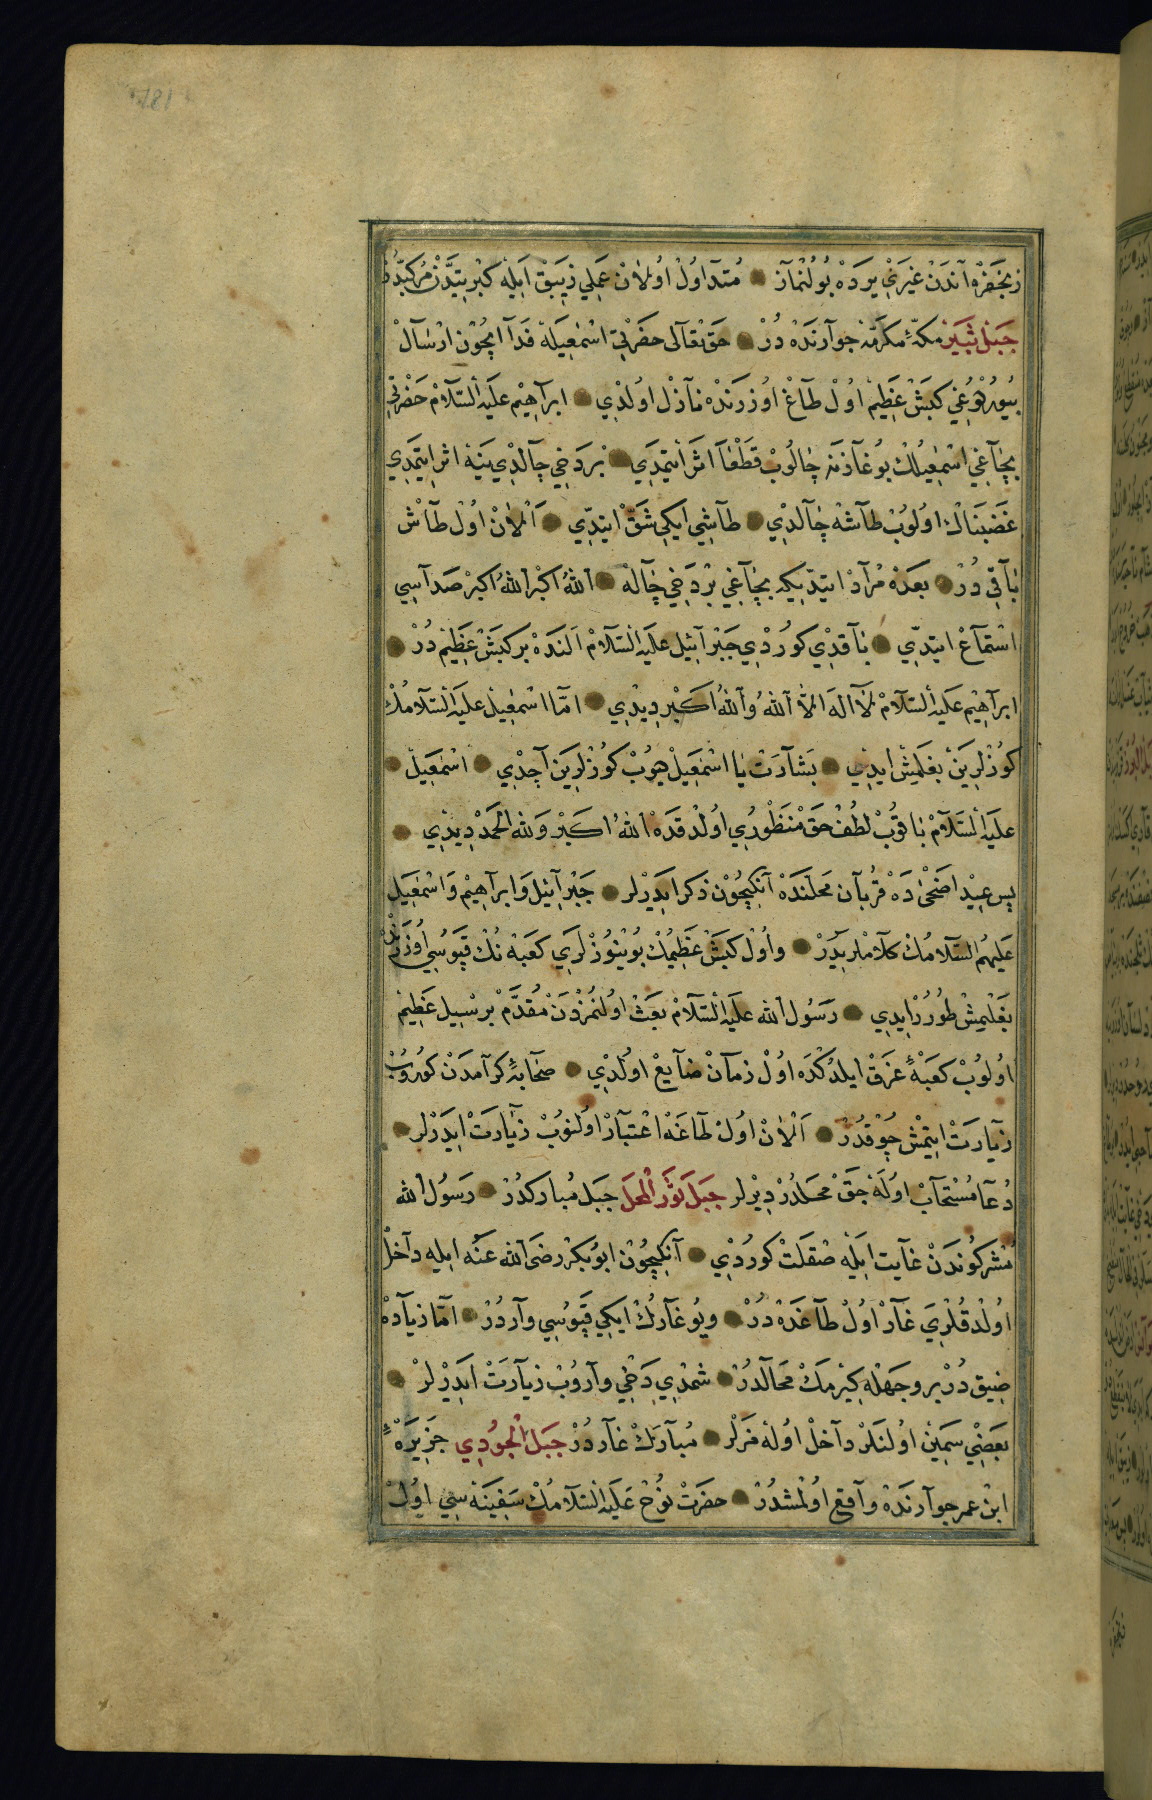 زنجفره آندن غيري يرده بولنماز متداول اولان عملي زيبق ايله كبريتدن مركبدر
جبل ثبير مكهٔ مكرمه جوارنده در حق تعالى حضرتي اسمعيله فدا ايچون ارسال
بيوردوغي كبش عظيم اول طاغ اوزرنده نازل اولدي ابراهيم عليه السلام حضرتي
بچاغي اسمعيلك بوغازنه چالوب قطعا اثر ايتمدي بر دخي چالدي ينه اثر ايتمدي
غضبناك اولوب طاشه چالدي طاشي ايكي شق ايتدي الان اول طاش
باقي در بعده مراد ايتديكه بچاغي بر دخي چاله الله اكبر الله اكبر صداسي
استماع ايتدي باقدي كوردي جبرائيل عليه السلام النده بر كبش عظيم در
ابراهيم عليه السلام لا اله الا الله والله اكبر ديدي اما اسمعيل عليه السلامك
كوزلرين بغلمش ايدي بشارت يا اسمعيل ديوب كوزلرين آچدي اسمعيل
عليه السلام باقوب لطف حق منظوري اولدقده الله اكبر ولله الحمد ديدي
پس عيد اضحى ده قربان محلنده آنكيچون ذكر ايدرلر جبرائيل وابراهيم واسمعيل
عليهم السلامك كلاملريدر واول كبش عظيمك بوينوزلري كعبه نك قپوسي اوزرنده
بغلمش طورر ايدي رسول الله عليه السلام بعث اولنمزدن مقدم بر سيل عظيم
اولوب كعبهٔ غرق ايلدكده اول زمان ضايع اولدي صحابهٔ كرامدن كوروب
زيارت ايتمش چوقدر الان اول طاغه اعتبار اولنوب زيارت ايدرلر
دعا مستجاب اوله جق محلدر ديرلر جبل ثور المحل جبل مباركدر رسول الله
مشركوندن غايت ايله صقلت كوردي آنكيچون ابو بكر رضى الله عنه ايله داخل
اولدقلري غار اول طاغده در وبو غارك ايكي قپوسي واردر اما زياده
ضيق در بر وجهله كيرمك محالدر شمدي دخي واروب زيارت ايدرلر
بعضي سمين اولنلر داخل اوله مزلر مبارك غاردر جبل الجودي جزيرهٔ
ابن عمر جوارنده واقع اولمشدر حضرت نوح عليه السلامك سفينه سي اول